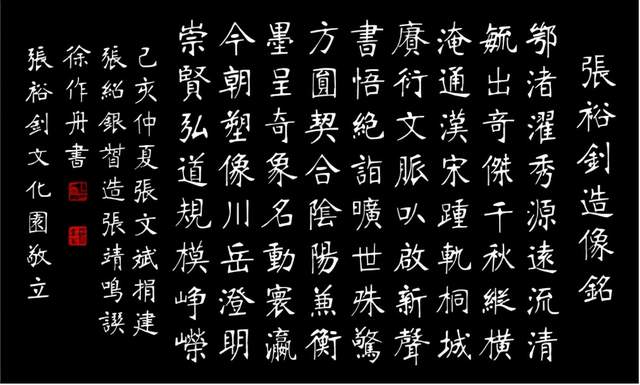 張裕釗造像銘
鄂渚濯秀源遠流清
毓出奇傑千秋縱橫
淹通漢宋踵軌桐城
賡衍文脈㕥啟新聲
書悟絕詣曠世殊驚
方圓契合陰陽兼衡
墨呈奇象名動寰瀛
今朝塑像川岳澄明
崇賢弘道規模崢嶸
己亥仲夏張文斌捐建
張紹銀督造張靖鳴譔
徐作舟書
張裕釗文化園敬立